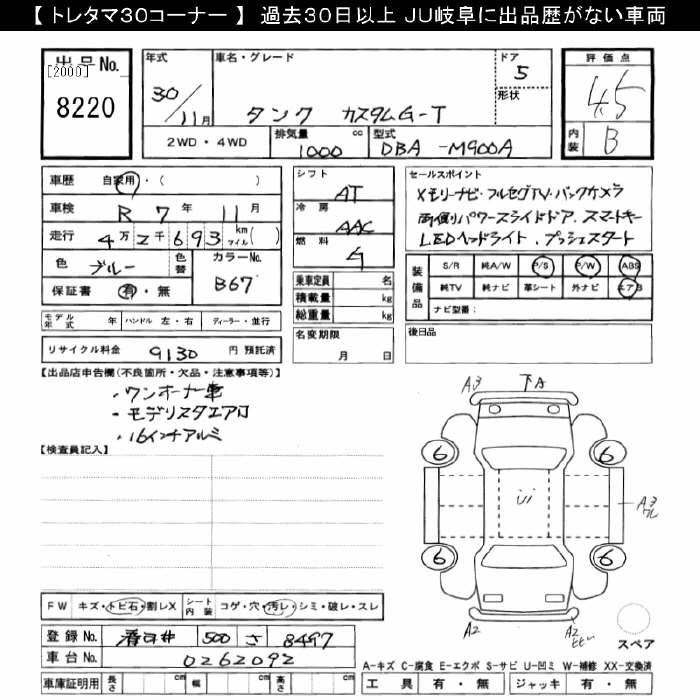 【 トレタマ30コーナー 】 過去30日以上 JU岐阜に出品歴がない車両
出品No.
[2000]
8220
年式
30/11月
車名・グレード
タンク カスタムG-T
ドア
5
形状
2WD・4WD
排気量 cc
1000
型式
DBA -M900A
評価点
4.5
内装
B
車歴 自家用・( )
車検 R 7 年 11 月
走行 4万2千693 km マイル( )
色 ブルー 色替 カラーNo. B67
保証書 有・無
モデル年式 年 ハンドル 左・右 ディーラー・並行
リサイクル料金 9130 円 預託済
シフト
AT
冷房
AAC
燃料
ｶﾞ
乗車定員 名
積載量 kg
総重量 kg
名変期限
月 日
セールスポイント
メモリーナビ・フルセグTV・バックカメラ
両側パワースライドドア、スマートキー
LEDヘッドライト、プッシュスタート
装備品
S/R 純A/W P/S P/W ABS
純TV 純ナビ 革シート 外ナビ エアB
ナビ型番：
後日品
【出品店申告欄(不良箇所・欠品・注意事項等)】
・ワンオーナー車
・モデリスタエアロ
・16インチアルミ
【検査員記入】
A3 下A
6 6
A3
6 6
A2 A2
スペア
FW キズ・トビ石・割レX シート内装 コゲ・穴・汚レ・シミ・破レ・スレ
登録No. 春日井 500 さ 8497
車台No. 0262092
車庫証明用 長さ cm 幅 cm 高さ cm
A-キズ C-腐食 E-エクボ S-サビ U-凹ミ W-補修 XX-交換済
工具 有・無 ジャッキ 有・無